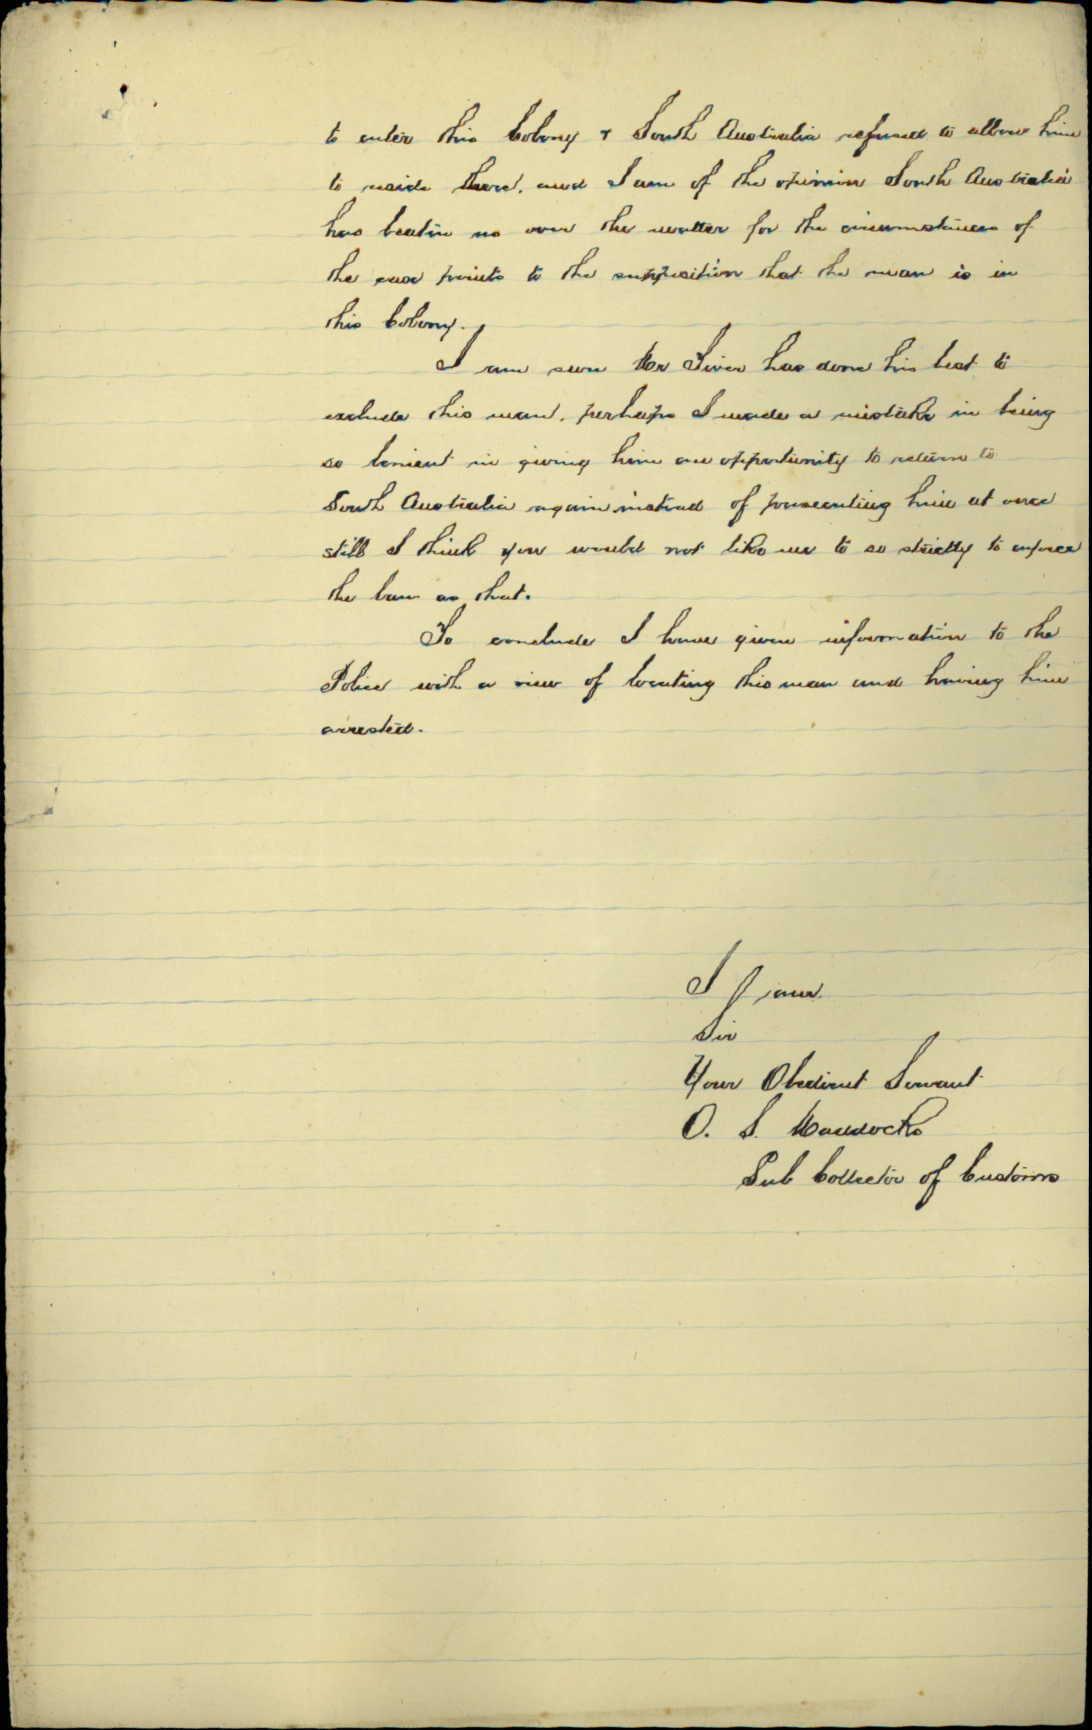 to enter this Colony & South Australia refused to allow him
to reside there, and I am of the opinion South Australia
has beaten us over the matter for the circumstances of
the case points to the supposition that the man is in
this Colony.
I am sure Mr Siver has done his best to
exclude this man, perhaps I made a mistake in being
so lenient in giving him an opportunity to return to
South Australia again instead of prosecuting him at once
still I think you would not like me to so strictly to enforce
the law as that.
To conclude I have given information to the
Police with a view of locating this man and having him
arrested.
I am
Sir
Your Obedient Servant
O. S. Maddocks
Sub Collector of Customs